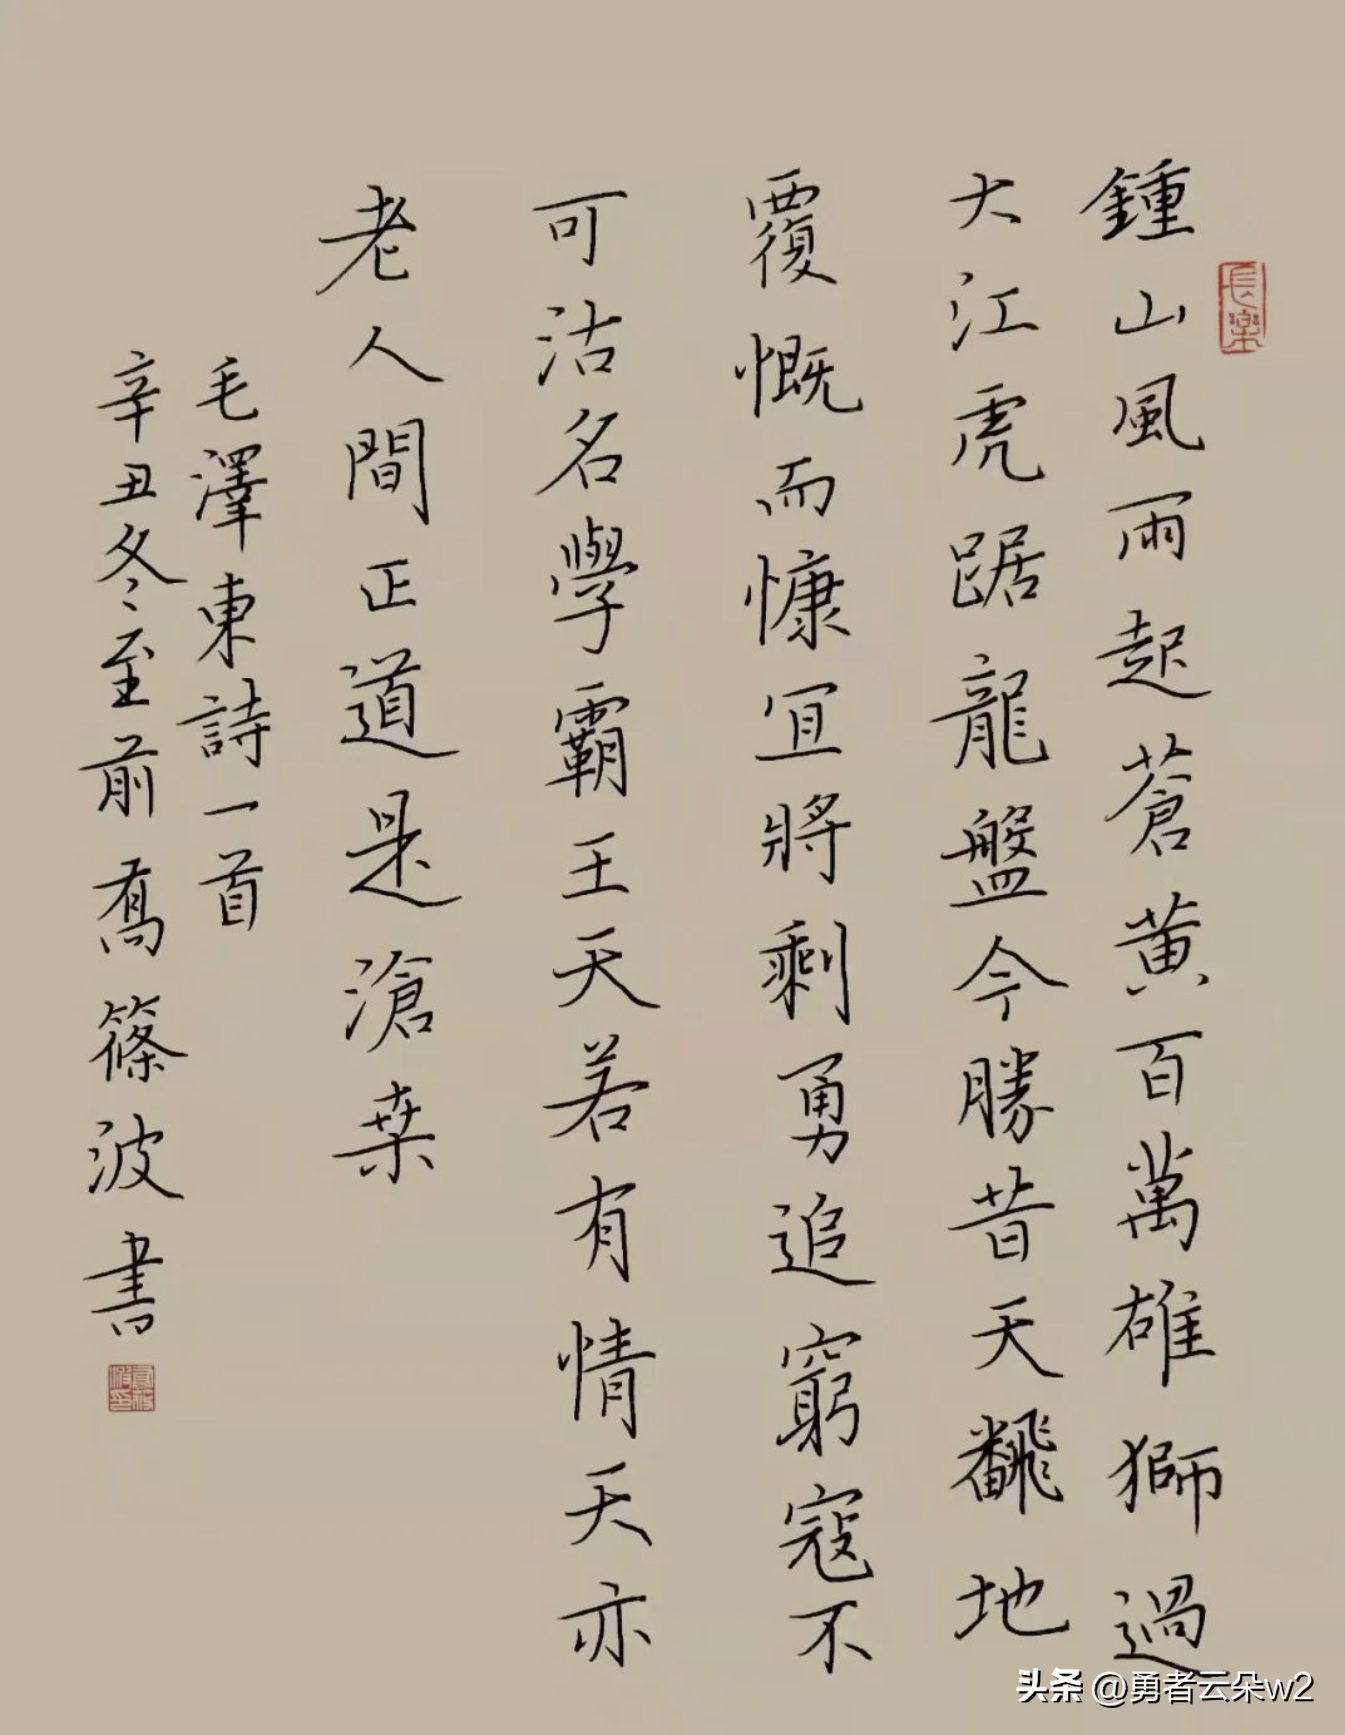 鍾山風雨起蒼黃百萬雄獅過
大江虎踞龍盤今勝昔天飜地
覆慨而慷宜將剩勇追窮寇不
可沽名學霸王天若有情天亦
老人間正道是滄桒
毛澤東詩一首
辛丑冬至前喬篠波書
長樂
头条 @勇者云朵w2